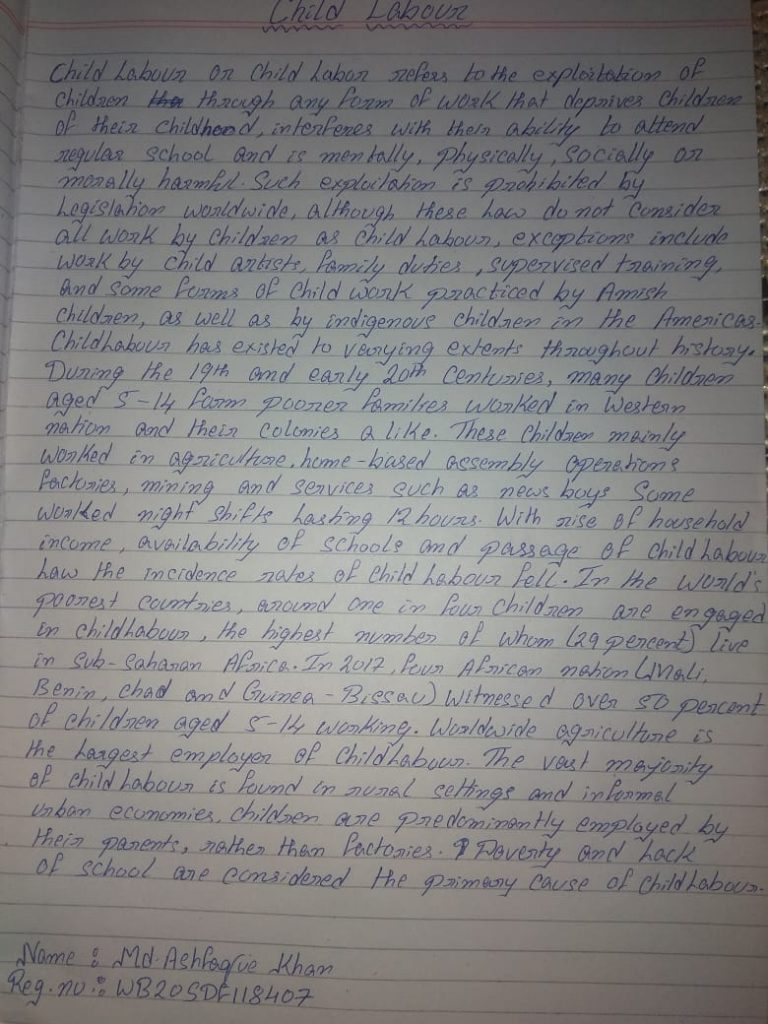 Child Labour
Child Labour or Child Labor refers to the exploitation of
Children through any form of work that deprives children
of their childhood, interferes with their ability to attend
regular school and is mentally, physically, socially or
morally harmful. Such exploitation is prohibited by
Legislation worldwide, although these Law do not consider
all work by children as child Labour, exceptions include
work by child artists, family duties, supervised training,
and some forms of child work practiced by Amish
children, as well as by indigenous children in the Americas.
Child Labour has existed to varying extents throughout history.
During the 19th and early 20th Centuries, many children
aged 5-14 form poorer families worked in Western
nation and their colonies a like. These children mainly
worked in agriculture, home-based assembly operations
factories, mining and services such as news boys Some
worked night shifts Lasting 12 hours. With rise of household
income, availability of schools and passage of child Labour
Law the incidence rates of child Labour fell. In the world's
poorest countries, around one in four children are engaged
in child Labour, the highest number of whom (29 percent) live
in sub-saharan Africa. In 2017, four African nation (Mali,
Benin, chad and Guinea-Bissau) witnessed over 50 percent
of children aged 5-14 working. Worldwide agriculture is
the Largest employer of child Labour. The vast majority
of child Labour is found in rural settings and informal
urban economies, children are predominantly employed by
their parents, rather than factories. Poverty and Lack
of school are considered the primary cause of child Labour.
Name : Md. Ashfaque Khan
Reg. no : WB20SDF118407